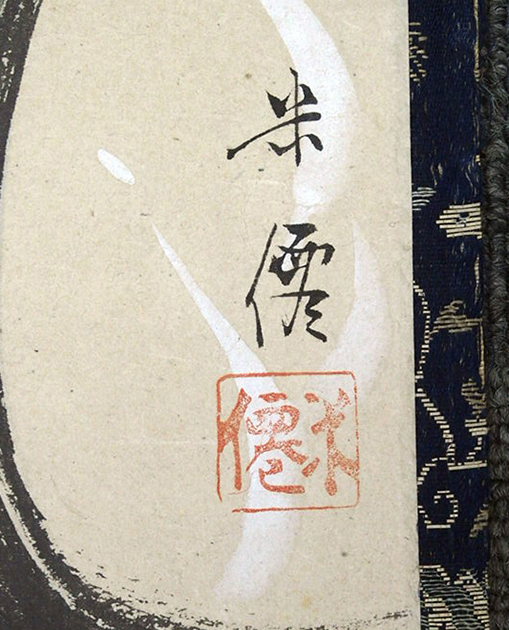 米僊
米僊